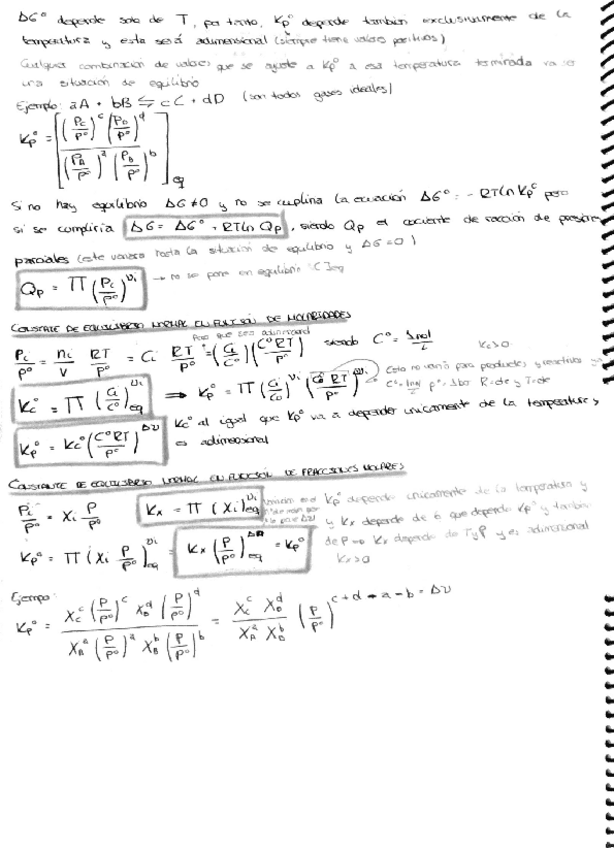 ΔG° depende solo de T, por tanto, Kp° depende también exclusivamente de la
temperatura y esta será adimensional (siempre tiene valores positivos)
Cualquier combinación de valores que se ajuste a Kp° a esa temperatura terminada va ser
una situación de equilibrio
Ejemplo: aA + bB ⇆ cC + dD (son todos gases ideales)
Kp° = [ (Pc/P°)^c (PD/P°)^d / (PA/P°)^a (PB/P°)^b ]eq
Si no hay equilibrio ΔG ≠ 0 y no se cumpliria la ecuación ΔG° = - RTln Kp° pero
si se cumpliria ΔG = ΔG° + RTln Qp, siendo Qp el cociente de reacción de presiones
parciales (este variara hasta la situación de equilibrio y ΔG = 0)
Qp = Π (Pi/P°)^νi → no se pone en equilibrio
CONSTANTE DE EQUILIBRIO NORMAL EN FUNCIÓN DE MOLARIDADES
Para que sea adimensional
Pi/P° = ni/V RT/P° = Ci RT/P° = (Ci/C°)(C°RT/P°) siendo C° = 1mol/L Kc>0
Kc° = Π (Ci/C°)^νi eq ⇒ Kp° = Π (Ci/C°)^νi (C°RT/P°)^νi Esto no varía para productos y reactivos
Kc° al igual que Kp° va a depender unicamente de la temperatura y
Kp° = Kc° (C°RT/P°)^Δν es adimensional
CONSTANTE DE EQUILIBRIO NORMAL EN FUNCIÓN DE FRACCIONES MOLARES
Pi/P° = Xi P/P° Kx = Π (Xi)^νi eq Kp° depende unicamente de la temperatura y
y Kx depende de lo que depende Kp° y también
Kp° = Π (Xi P/P°)^νi eq = Kx (P/P°)^Δν eq = Kp° de P ⇒ Kx depende de T y P y es adimensional
Kx>0
Ejemplo:
Kp° = Xc^c (P/P°)^c XD^d (P/P°)^d / XA^a (P/P°)^a XB^b (P/P°)^b = Xc^c XD^d / XA^a XB^b (P/P°)^c+d-a-b = Δν